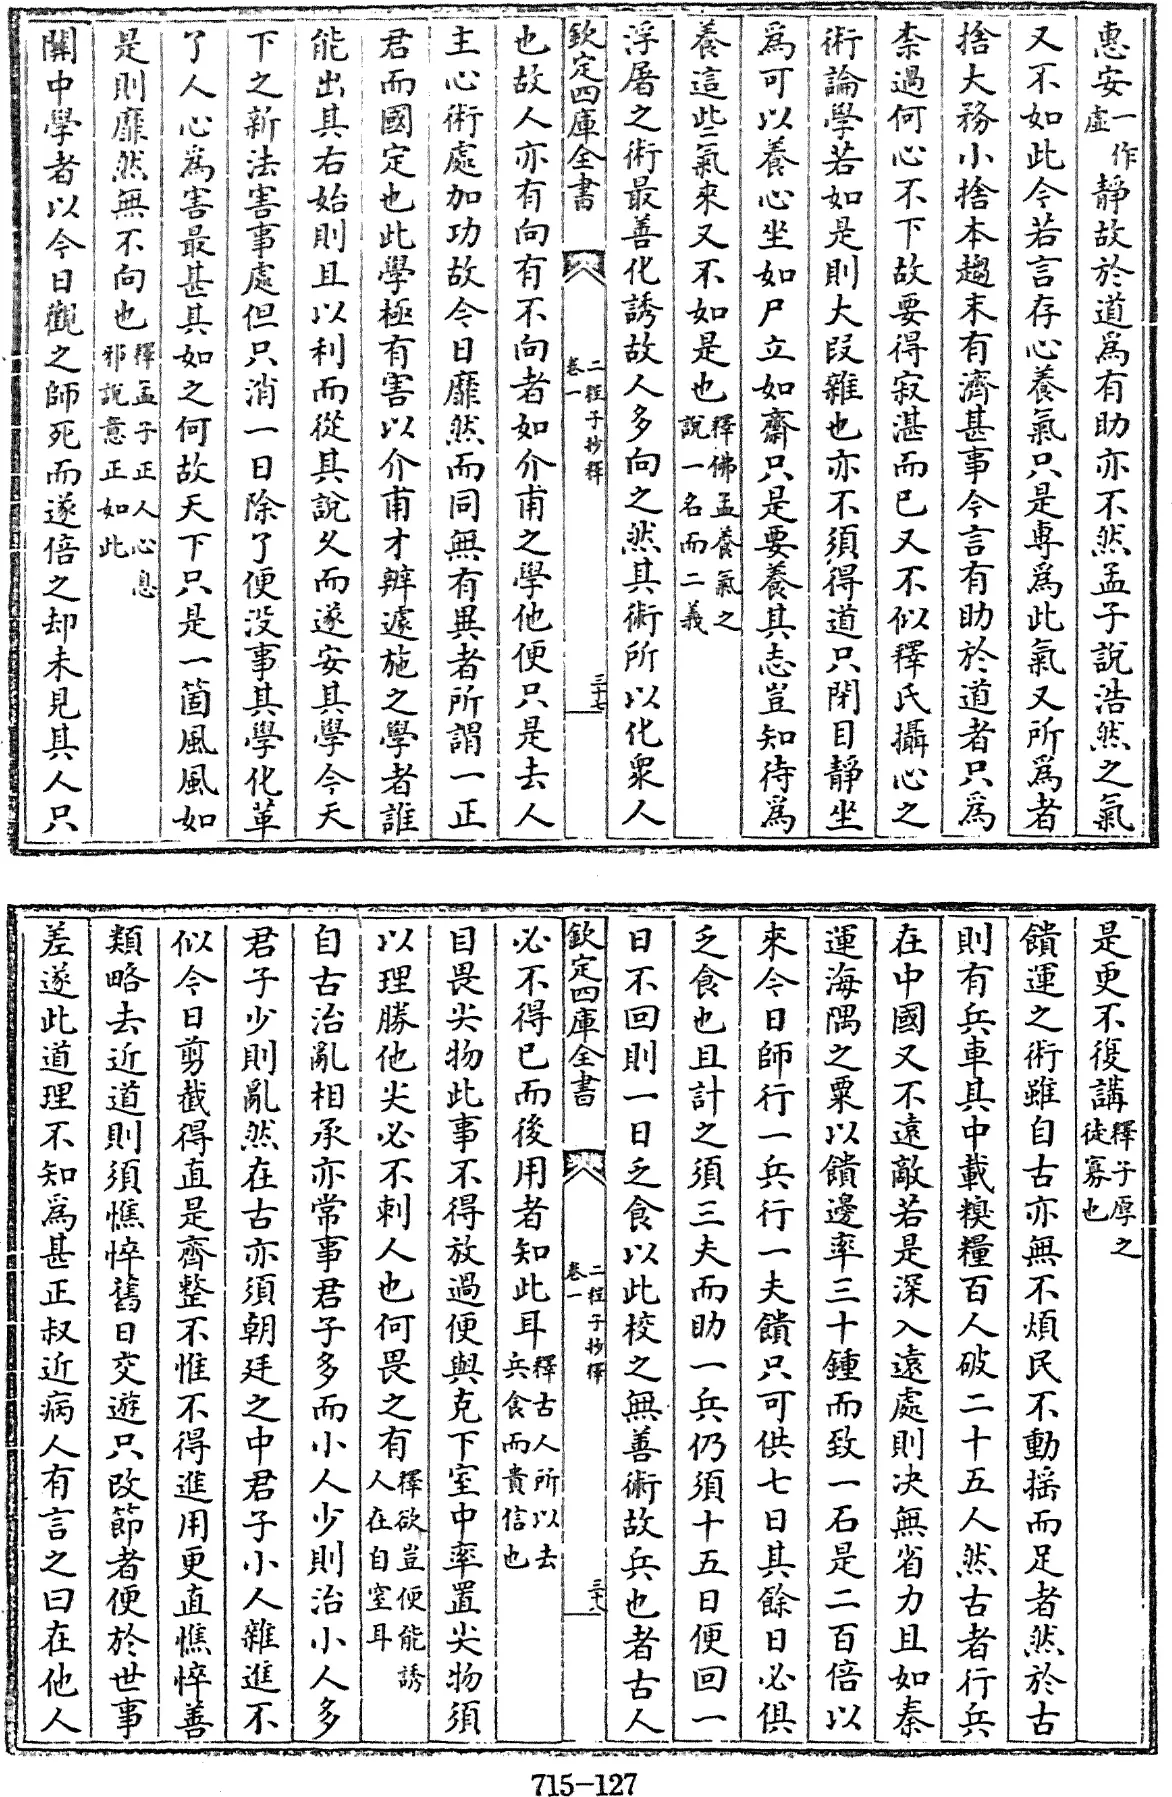 惠安一作虛靜故於道爲有助亦不然孟子說浩然之氣
又不如此今若言存心養氣只是專爲此氣又所爲者
捨大務小捨本趨末有濟甚事今言有助於道者只爲
柰過何心不下故要得寂湛而已又不似釋氏攝心之
術論學若如是則大段雜也亦不須得道只閉目靜坐
爲可以養心坐如尸立如齋只是要養其志豈知待爲
養這些氣來又不如是也釋佛孟養氣之說一名而二義
浮屠之術最善化誘故人多向之然其術所以化衆人
欽定四庫全書 卷一 二程子抄釋 三十七
也故人亦有向有不向者如介甫之學他便只是去人
主心術處加功故今日靡然而同無有異者所謂一正
君而國定也此學極有害以介甫才辨遽施之學者誰
能出其右始則且以利而從其說久而遂安其學今天
下之新法害事處但只消一日除了便没事其學化革
了人心爲害最甚其如之何故天下只是一箇風風如
是則靡然無不向也釋孟子正人心息邪說意正如此
關中學者以今日觀之師死而遂倍之却未見其人只
是更不復講釋子厚之徒寡也
饋運之術雖自古亦無不煩民不動揺而足者然於古
則有兵車其中載糗糧百人破二十五人然古者行兵
在中國又不遠敵若是深入遠處則决無省力且如秦
運海隅之粟以饋邊率三十鍾而致一石是二百倍以
來今日師行一兵行一夫饋只可供七日其餘日必俱
乏食也且計之須三夫而助一兵仍須十五日便回一
日不回則一日乏食以此校之無善術故兵也者古人
欽定四庫全書 卷一 二程子抄釋 三十八
必不得已而後用者知此耳釋古人所以去兵食而貴信也
目畏尖物此事不得放過便與克下室中率置尖物須
以理勝他尖必不刺人也何畏之有釋欲豈便能誘人在自室耳
自古治亂相承亦常事君子多而小人少則治小人多
君子少則亂然在古亦須朝廷之中君子小人雜進不
似今日剪截得直是齊整不惟不得進用更直憔悴善
類略去近道則須憔悴舊日交遊只改節者便於世事
差遂此道理不知爲甚正叔近病人有言之曰在他人
715-127